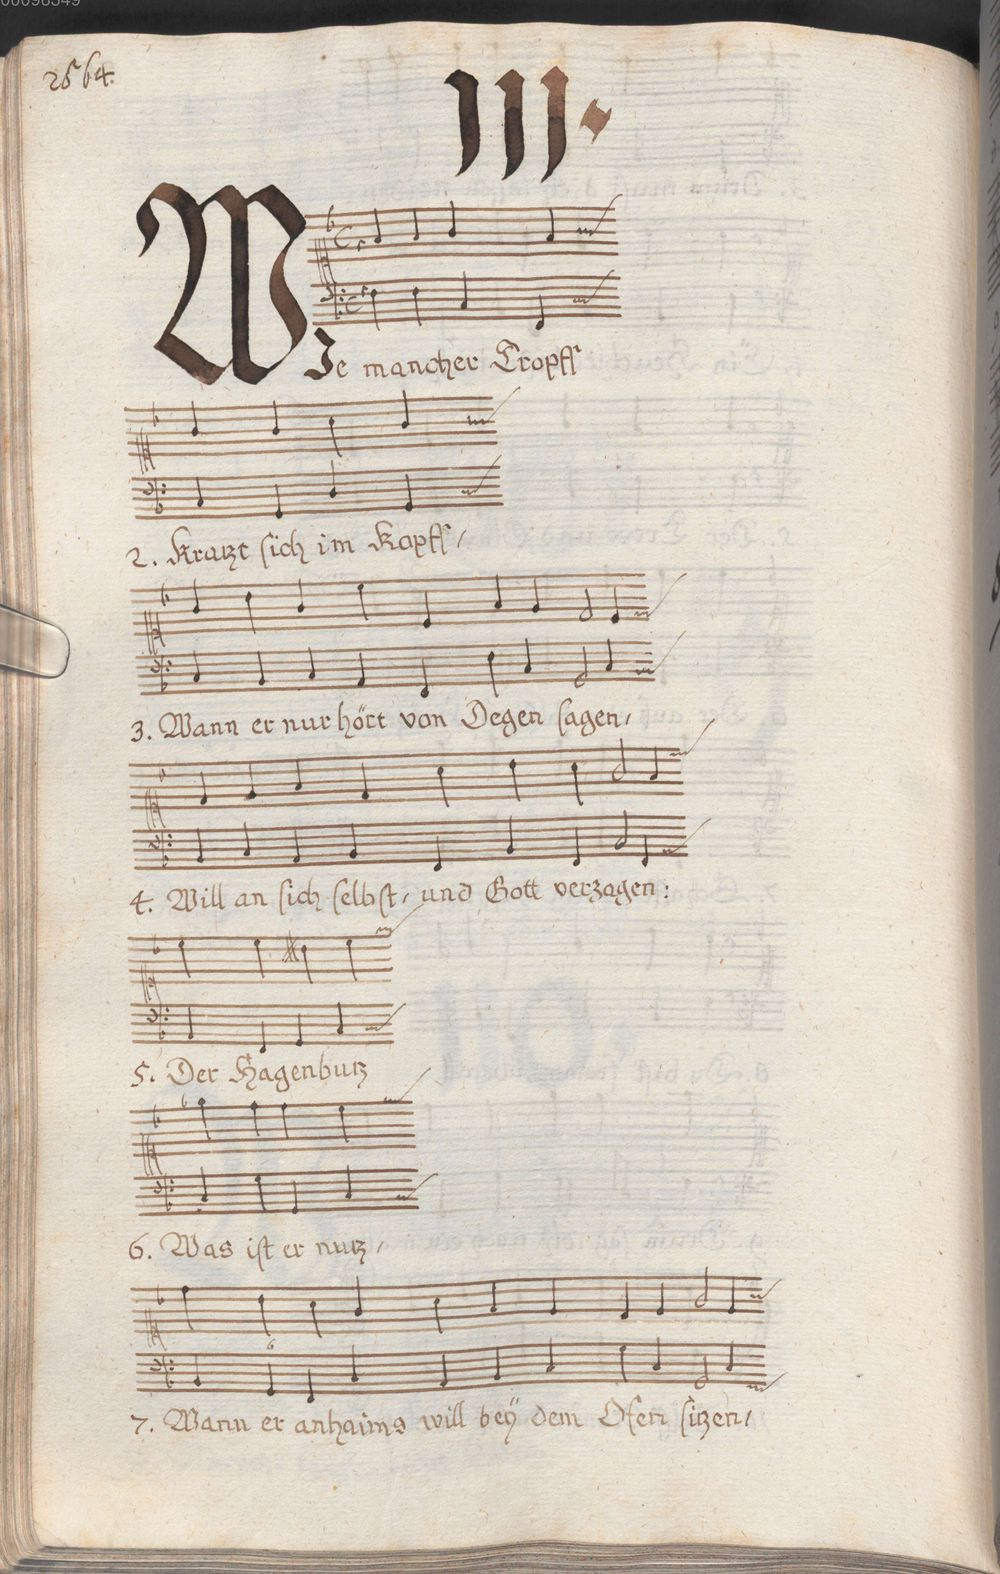 00096349
2564.
III.
WIe mancher Tropff
2. Kratzt sich im Kopff/
3. Wann er nur hört von Degen sagen/
4. Will an sich selbst/ und Gott verzagen:
5. Der Hagenbutz
6. Was ist er nutz/
7. Wann er anhaims will beÿ dem Ofen sitzen/